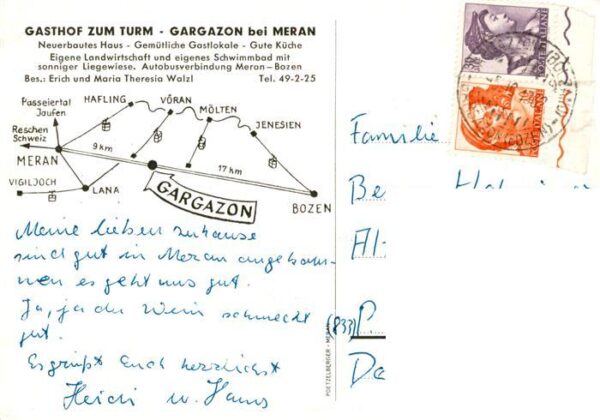 GASTHOF ZUM TURM - GARGAZON bei MERAN
Neuerbautes Haus - Gemütliche Gastlokale - Gute Küche
Eigene Landwirtschaft und eigenes Schwimmbad mit
sonniger Liegewiese. Autobusverbindung Meran - Bozen
Bes.: Erich und Maria Theresia Walzl Tel. 49-2-25
Passeiertal
Jaufen
HAFLING
VÖRAN
MÖLTEN
JENESIEN
Reschen
Schweiz
MERAN
9 km
17 km
VIGILJOCH
LANA
GARGAZON
BOZEN
Meine lieben zuhause
sind gut in Meran angekom-
men es geht uns gut.
Ja, ja der Wein schmeckt
gut.
Es grüßt Euch herzlichst
Heidi u. Hans
POETZELBERGER - MERAN
Familie
Be
Al-
(833) P.
Da